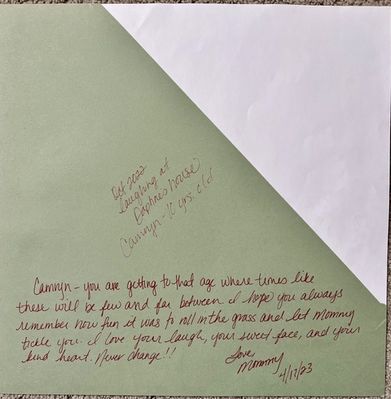 Oct 2022
Laughing at
Daphne's house
Camryn - 10 yrs. old
Camryn - you are getting to that age where times like
these will be few and far between. I hope you always
remember how fun it was to roll in the grass and let Mommy
tickle you. I love your laugh, your sweet face, and your
kind heart. Never change!!
Love,
Mommy
4/17/23